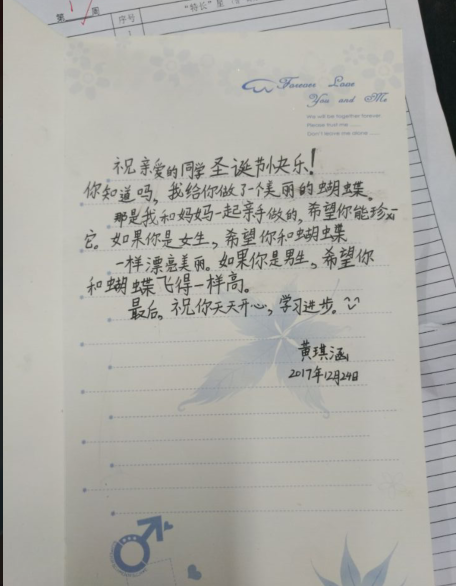 第 周
序号
1
"特长"星
Forever Love
You and Me
We will be together forever
Please trust me ......
Don't leave me alone ......
祝亲爱的同学圣诞节快乐!
你知道吗,我给你做了一个美丽的蝴蝶。
那是我和妈妈一起亲手做的,希望你能珍惜
它。如果你是女生,希望你和蝴蝶
一样漂亮美丽。如果你是男生,希望你
和蝴蝶飞得一样高。
最后,祝你天天开心,学习进步。
黄琪涵
2017年12月24日